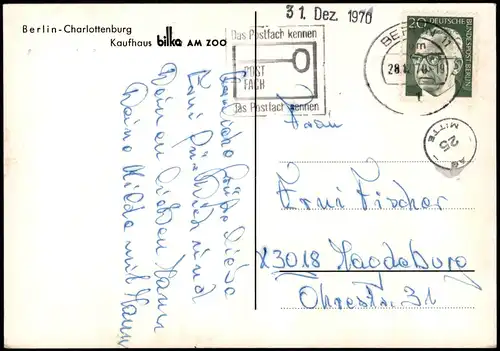 Berlin-Charlottenburg
Kaufhaus bilka AM ZOO
31. Dez. 1970
Das Postfach kennen
POST
FACH
das Postfach kennen
BERLIN
28.12.70-19
20
DEUTSCHE BUNDESPOST BERLIN
25
MITTE
Herzliche Grüße liebe
Erni für Dich und
Deinen lieben Mann
Deine Hilde mit Hans
Frau
Erni Fischer
X3018 Magdeburg
Ohrestr. 31